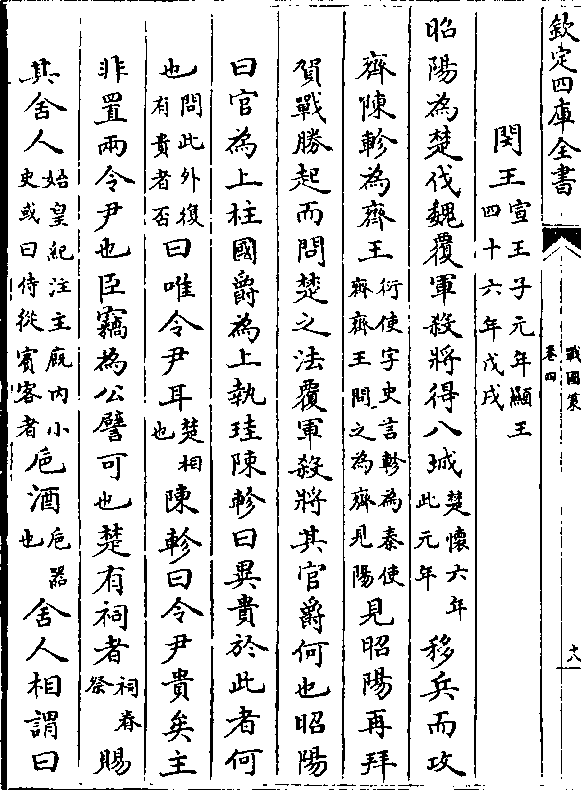 欽定四庫全書
戰國策
卷四
十八
閔王宣王子元年顯王四十六年戊戌
昭陽為楚伐魏覆軍殺將得八城楚懷六年此元年移兵而攻
齊陳軫為齊王衍使字史言軫為秦使齊齊王問之為齊見陽見昭陽再拜
賀戰勝起而問楚之法覆軍殺將其官爵何也昭陽
曰官為上柱國爵為上執珪陳軫曰異貴於此者何
也問此外復有貴者否曰唯令尹耳楚相也陳軫曰令尹貴矣主
非置兩令尹也臣竊為公譬可也楚有祠者祠春祭賜
其舍人始皇紀注主廐内小吏或曰侍從賓客者巵酒巵器也舍人相謂曰